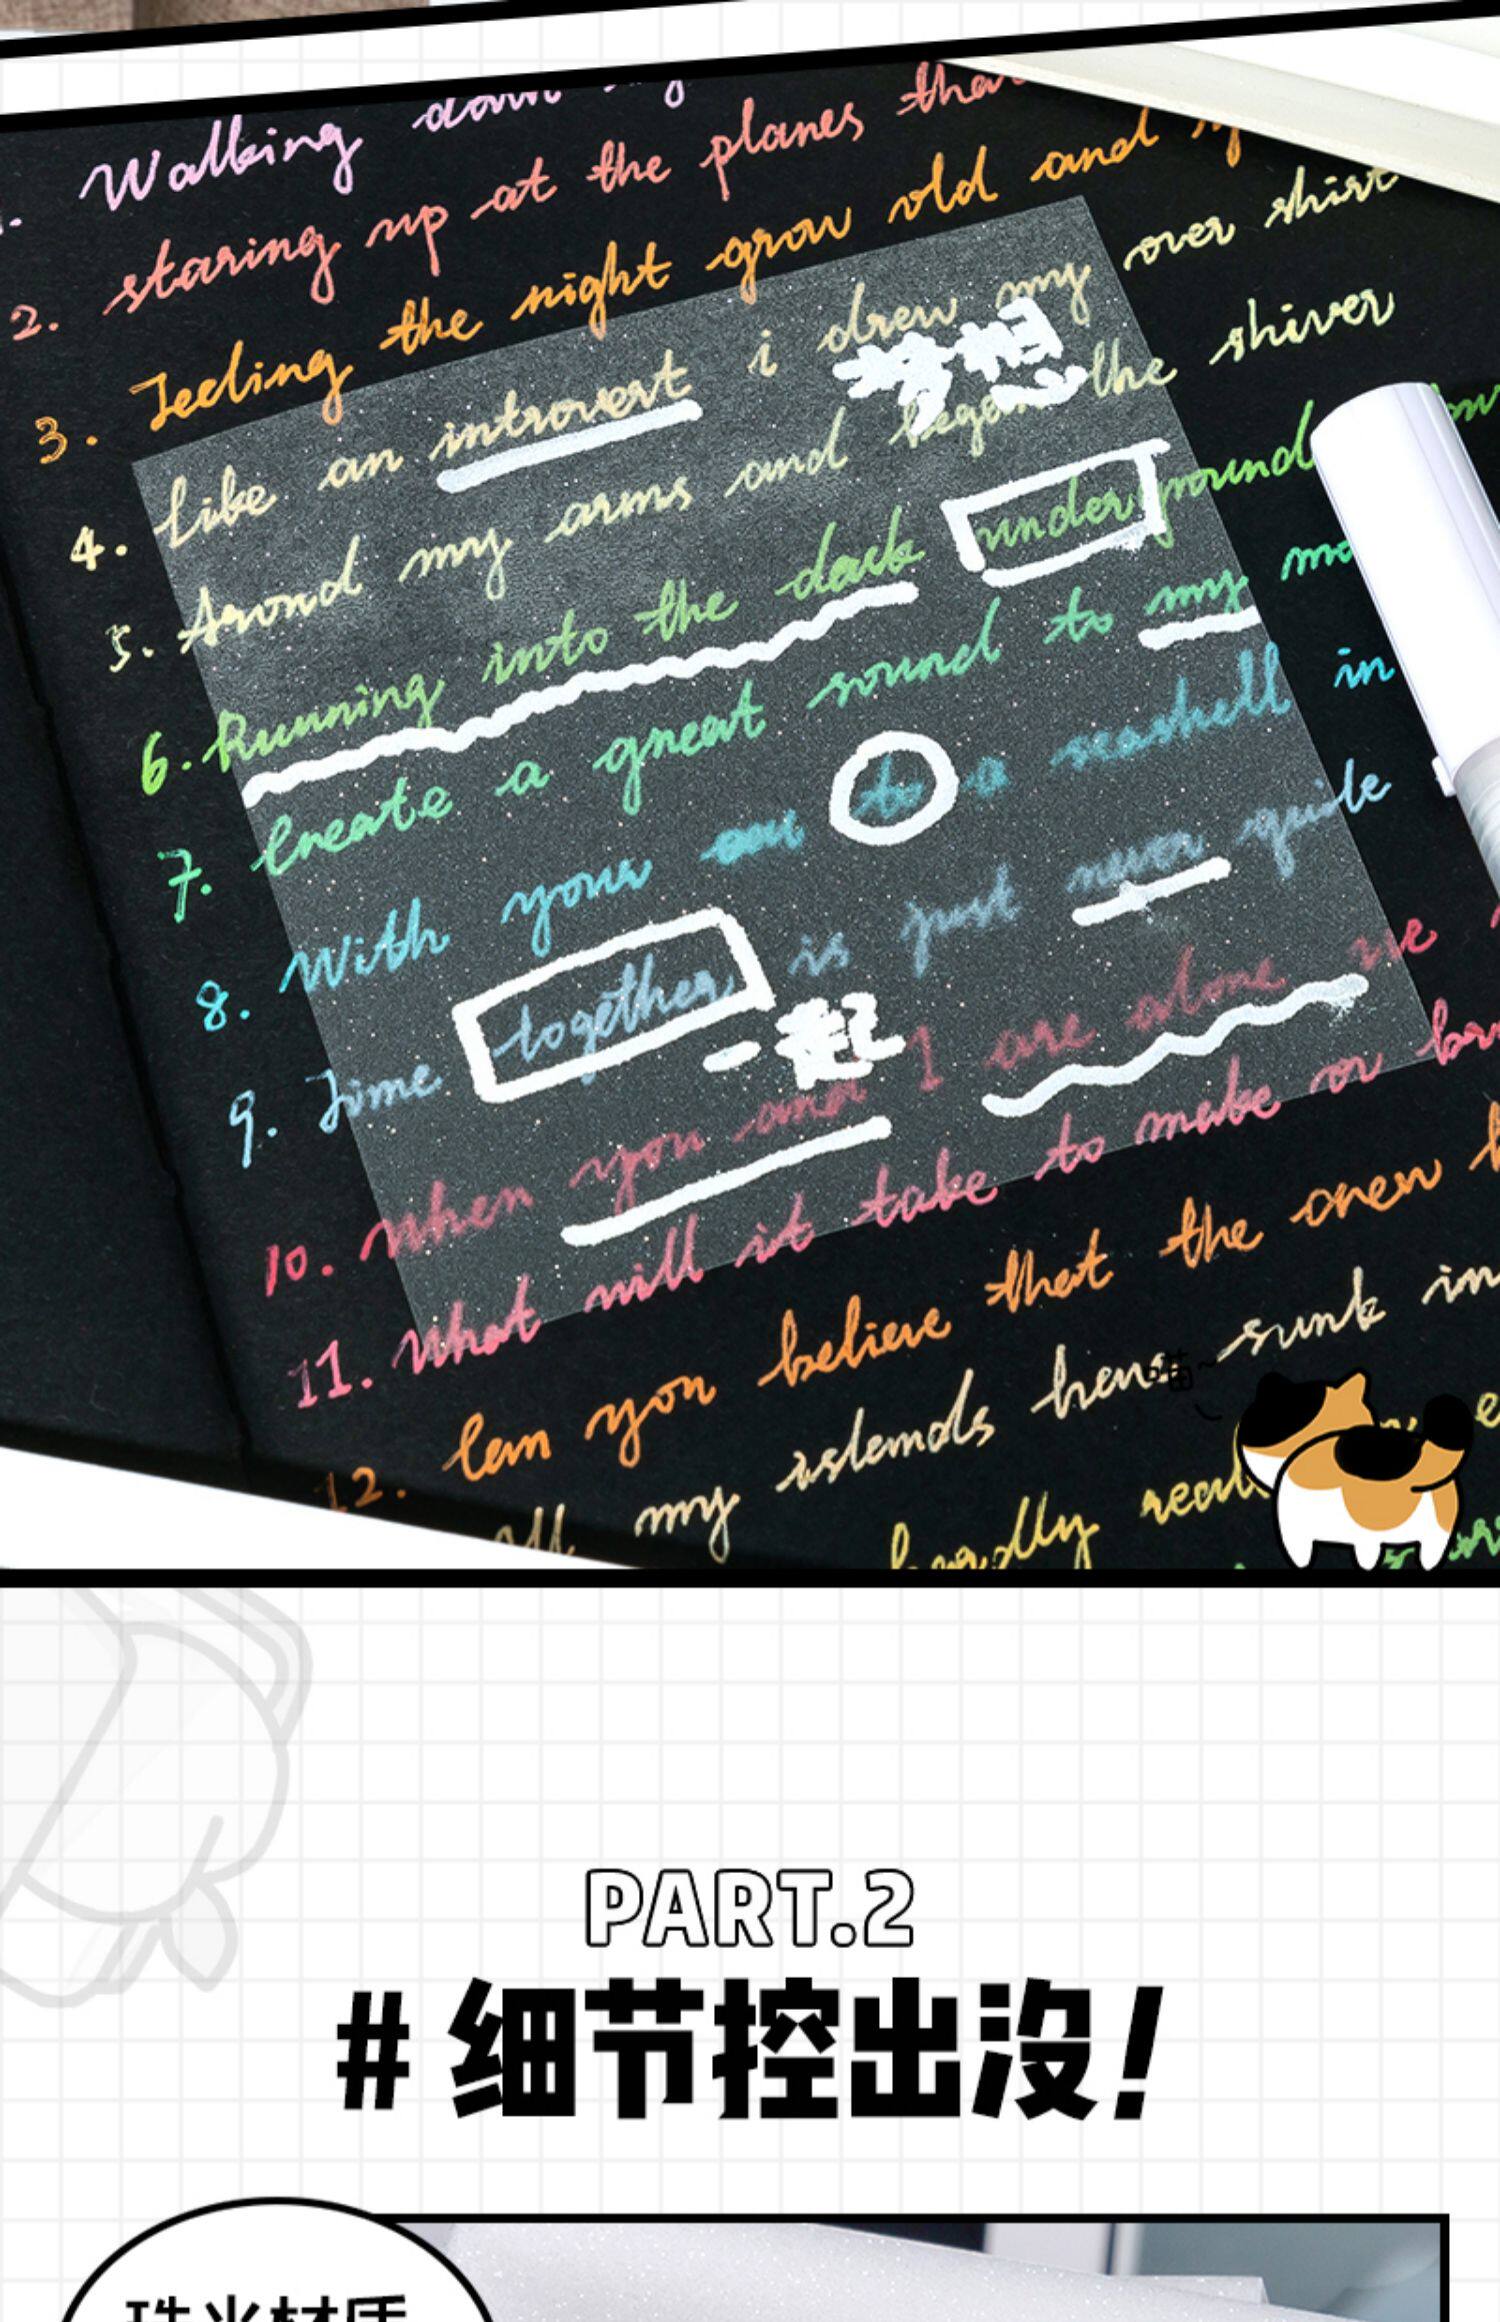 Walking down my
2. staring up at the planes that
3. Feeling the night grow old and y
4. Like an introvert i drew my over shirt
梦想
5. Arond my arms and began the shiver
6. Running into the dark underground
7. Create a great sound to my mo
8. With your ear to a seashell in
9. Time together is just never quite
一起
10. When you and I are alone we
11. What will it take to make or br
12. Cem you believe thet the crew h
all my islemds hene sunk in
喵~
hardly real
PART.2
#细节控出没!
珠光材质